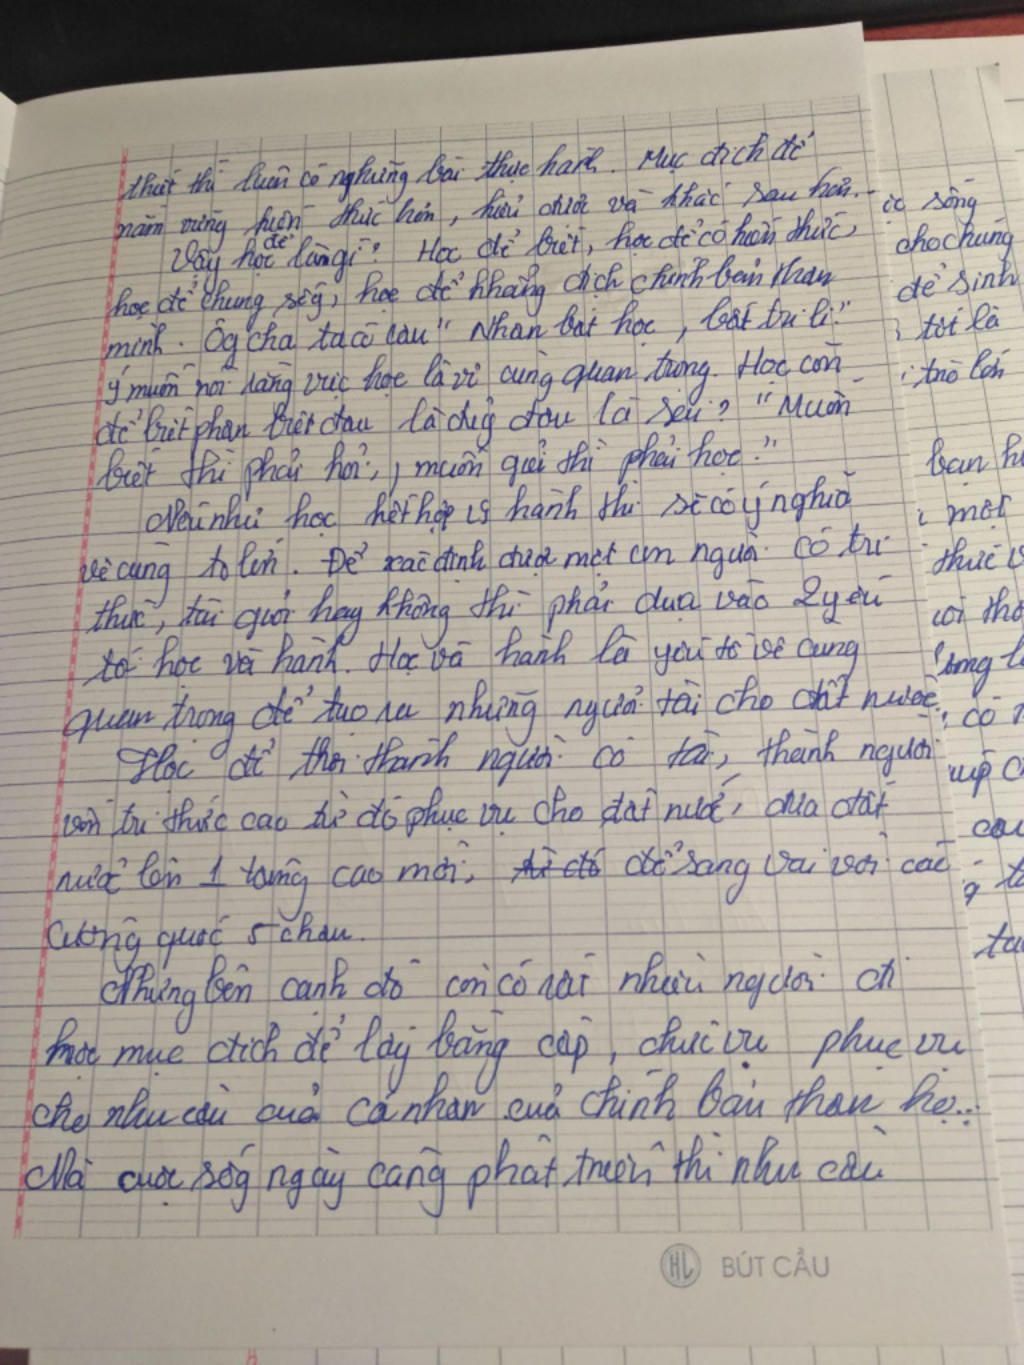 thuyết thì luôn có những bài thực hành. Mục đích để
nắm vững kiến thức hơn, hiểu được và khác sâu hơn.
Vậy học để làm gì? Học để biết, học để có kiến thức,
học để chung sốg, học để khẳng định chính bản thân
mình. Ôg cha ta có câu "Nhân bất học, bất tri lí."
Ý muốn nói rằng việc học là vô cùng quan trọng. Học còn
để biết phân biệt đâu là đúg đâu là sai? "Muốn
biết thì phải hỏi, muốn giỏi thì phải học."
Nếu như học kết hợp vs hành thì sẽ có ý nghĩa
vô cùng to lớn. Để xác định được một cn người có tri
thức, tài giỏi hay không thì phải dựa vào 2 yếu
tố học và hành. Học và hành là yếu tố vô cùng
quan trọng để tạo ra những người tài cho đất nước.
Học để thành người có tài, thành người
vốn tri thức cao từ đó phục vụ cho đất nước, đưa đất
nước lên 1 tầng cao mới, từ đó để sang vai với các
cường quốc 5 châu.
Nhưng bên cạnh đó còn có rất nhiều người đi
học mục đích để lấy bằng cấp, chức vụ phục vụ
cho nhu cầu của cá nhân của chính bản thân họ...
Mà cuộc sốg ngày càng phát triển thì nhu cầu
HL BÚT CẦU
sống
cho chúng
để sinh
tôi là
trò lớn
bạn
một
thức
có